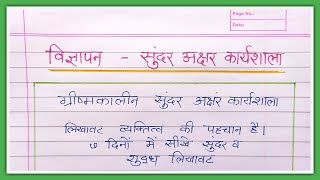 Page No.:
Date:
विज्ञापन - सुंदर अक्षर कार्यशाला
ग्रीष्मकालीन सुंदर अक्षरं कार्यशाला
लिखावट व्यक्तित्व की पहचान है।
७ दिनों में सीखे सुदर व
शुध्ध लिखावट